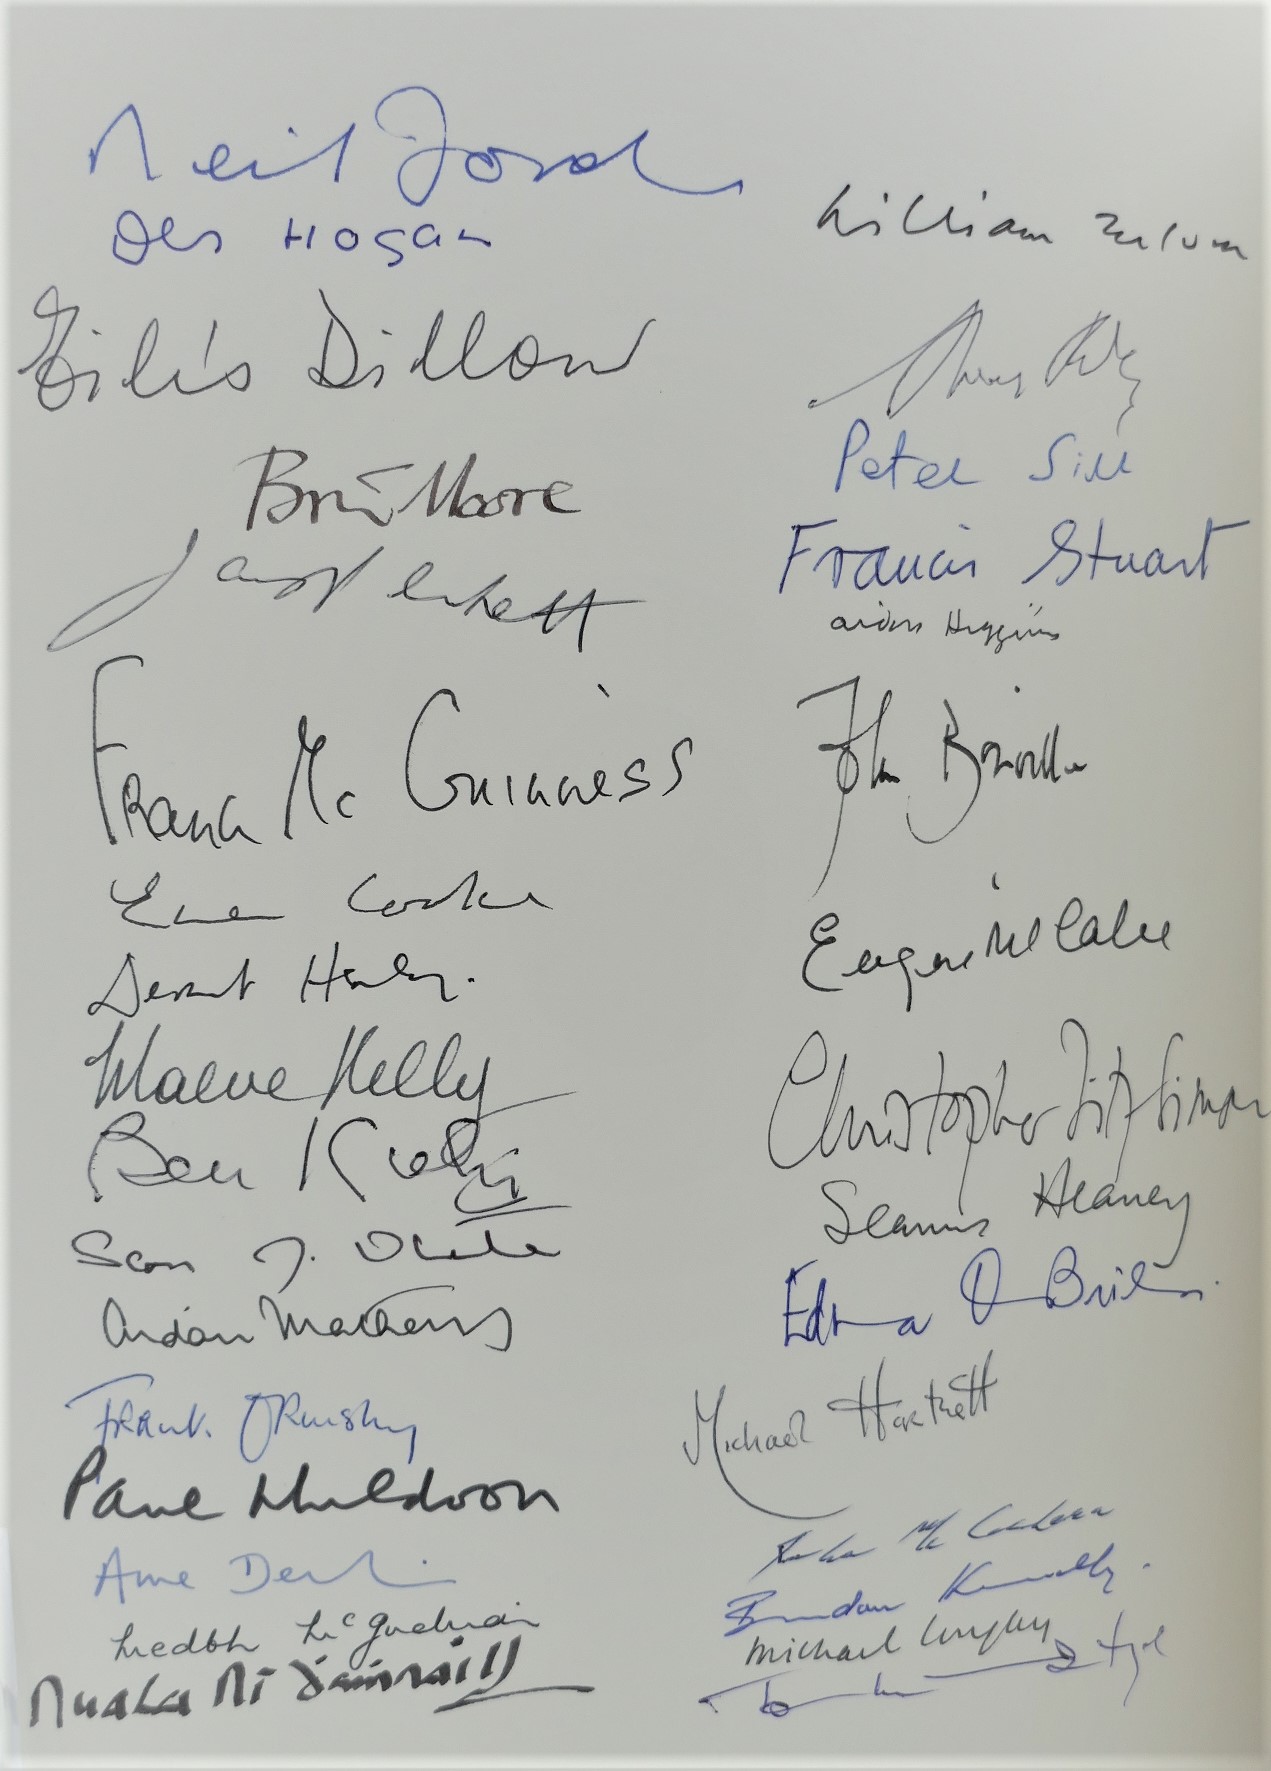 Neil Jordan
Des Hogan
Eilís Dillon
Brian Moore
Frank Mc Guinness
Emma Cooke
Dermot Healy
Maeve Kelly
Ben Kiely
Sean J.
Aidan Mathews
Frank Ormsby
Paul Muldoon
Anne Devlin
Medbh McGuckian
Nuala Ní Domhnaill
William Trevor
Peter Sirr
Francis Stuart
aidan Higgins
John Banville
Eugene McCabe
Christopher FitzSimon
Seamus Heaney
Edna O'Brien
Michael Hartnett
Brendan Kennelly
michael longley